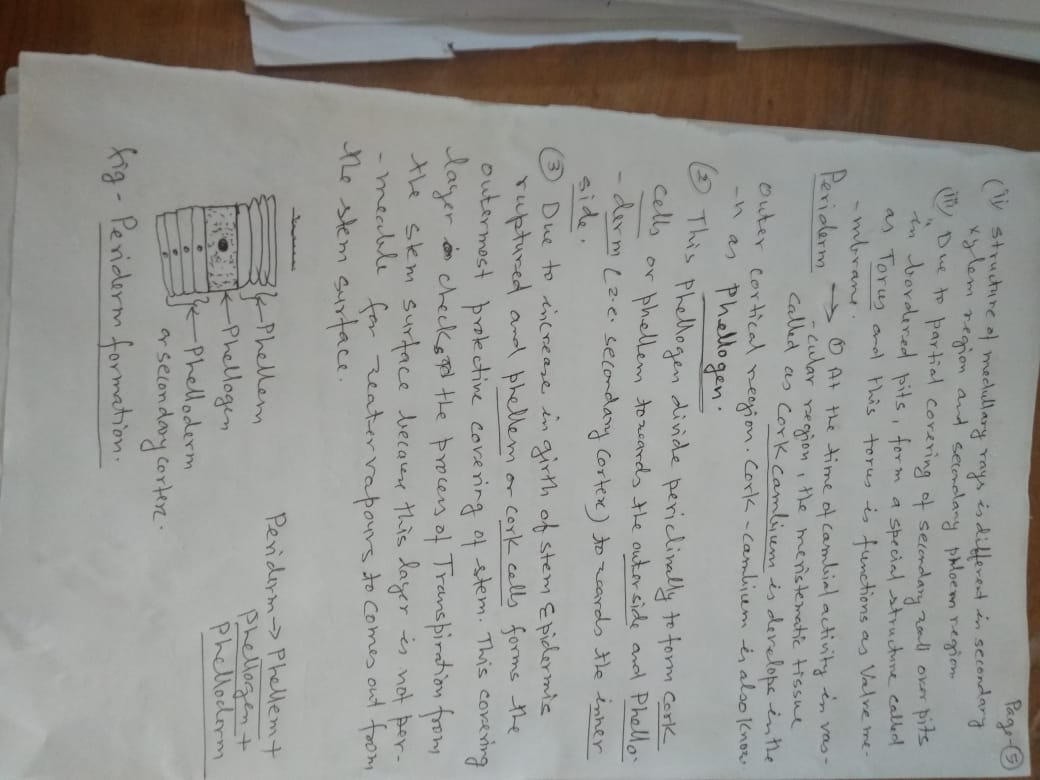 Page-(5)
(ii) structure of medullary rays is different in secondary
xylem region and secondary phloem region.
(iii) Due to partial covering of secondary wall over pits
in bordred pits, form a special structure called
as Torus and this torus is functions as Valve me-
-mbrane.
Periderm → ① At the time of cambial activity in vas-
-cular region, the meristematic tissue
called as Cork cambium is develope in the
outer cortical region. Cork-cambium is also know-
-n as Phellogen.
② This Phellogen divide periclinally to form Cork
cells or phellem towards the outer side and Phello-
-derm (i.e. secondary Cortex) towards the inner
side.
③ Due to increase in girth of stem Epidermis
ruptured and phellem or cork cells forms the
outermost protective covering of stem. This covering
layer checks the process of Transpiration from
the stem surface because this layer is not per-
-meable for water vapours to comes out from
the stem surface.
Phellem
Phellogen
Phelloderm
or secondary cortex.
fig - Periderm formation.
Periderm → Phellem +
Phellogen +
Phelloderm